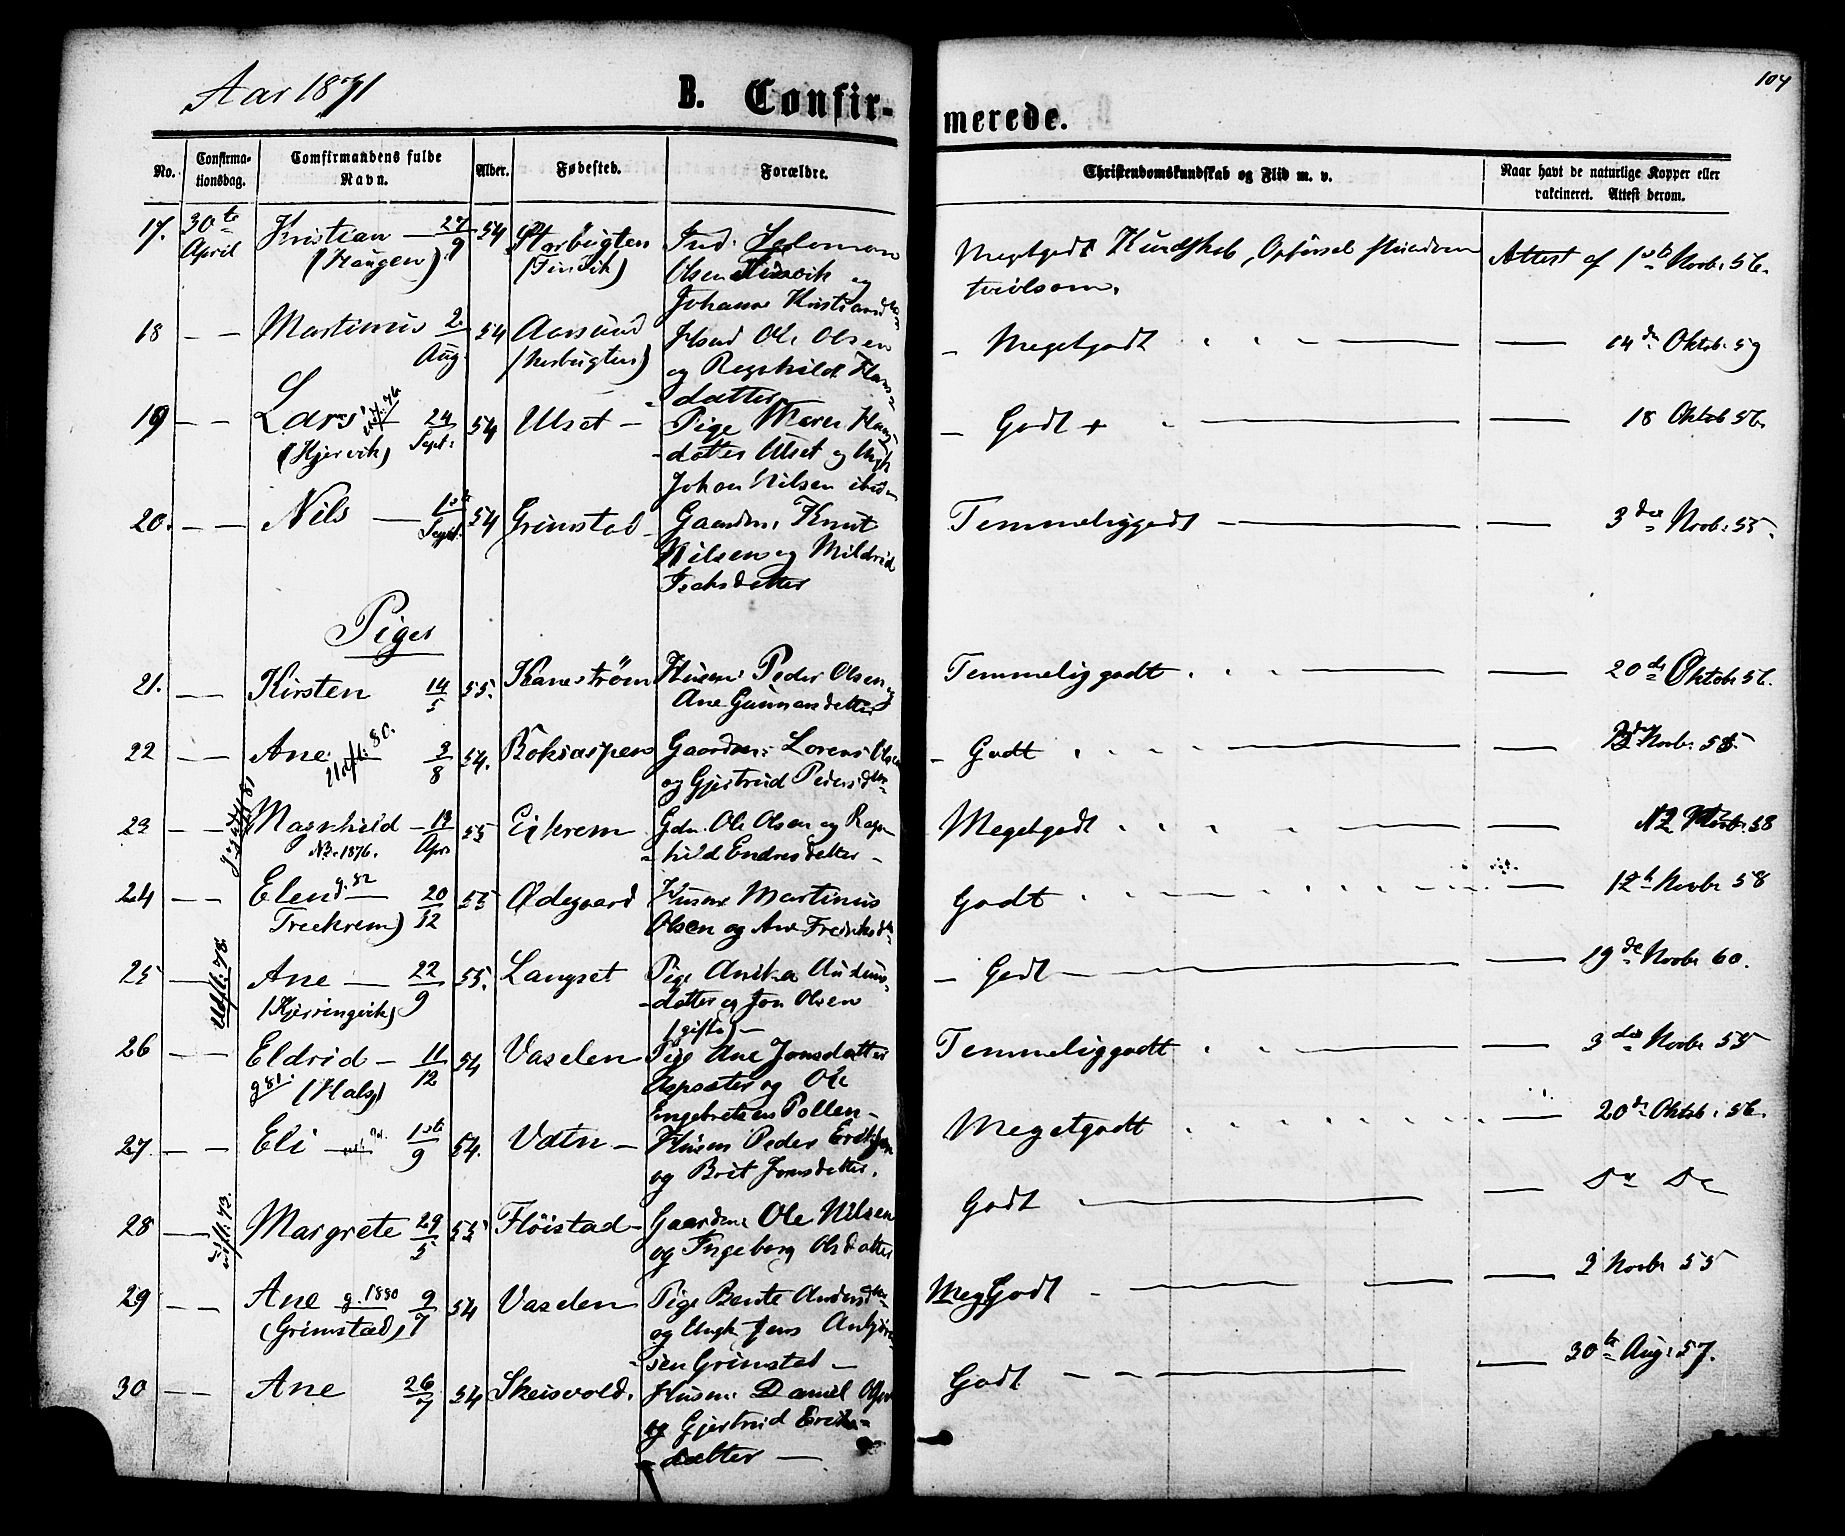 Aar 1871
B. Confir-
merede.
104
No.
Confirma-
tionsdag.
Comfirmandens fulde
Navn.
Alder.
Fødested.
Forældre.
Christendomskundskab og Flid m. v.
Naar havt de naturlige Kopper eller
vakcineret. Attest derom.
17. 30te Kristian — 27 54 Storbugten Ind. Salomon
April (Haugen) 9 Olsen og
Johanne Kristiansd
Megetgodt Kundskab, Opførsel
tvivlsom.
Attest af 1ste Novb. 56.
18 — — Martinus 2 54 Aarsund Husmd Ole Olsen
Aug. (Norbugten) og Regnhild Hans
datter
— Megetgodt — 14de Oktob. 59
19 — — Lars 24 54 Ulset — Pige Maren Hans
(Kjervik) Sept: -datter Ulset og Ungk
Johan Nilsen ibid
— Godt + — 18 Oktob 56.
20. — — Nils — 1ste 54 Grimstad — Gaardm. Knut
Sept. Nilsen og Mildrid
Isaksdatter
Temmeliggodt — 3die Novb. 55.
Piger
21. — — Kirsten 14 55. Kanestrøm Husm: Peder Olsen og
5 Ane Gunnarsdatter
Temmelig godt — 20de Oktob 56.
22 — — Ane 2 54. Boksaspen Gaardm: Lorens Olsen
Udfl. 80. 8 og Gjertrud Pedersdtr
— Godt — Novb. 55.
23 — — Magnhild — 19 55 Eikrem Gdm. Ole Olsen og Ragn
No. 1876. Apr. -hild Endresdatter —
Megetgodt — 12 Novb. 58
24 — — Elen g. 82 20 55 Ødegaard Husm Martinus
Treekrem) 12 Olsen og Ane Fredriksdtr
Godt — 12te Novbr 58
25 — Udfl. 78. Ane — 22 55. Langset Pige Anika Audens
(Kjerringvik) 9 -datter og Jon Olsen
(gifte) —
— Godt — 19de Novbr 60.
26 — — Eldrid — 11 54 Vaselen Pige Ane Jonsdatter
g 81. (Hals) 12 og Ole
Engebretsen Pollen —
Temmeliggodt — 3die Novbr 55
27. — — Eli — 1ste 54. Vatn — Husm Peder Eriksen
9 og Brit Jonsdatter.
Megetgodt — 20de Oktob. 56.
28 — Margrete 29 55 Fløistad — Gaardm: Ole Nilsen
5 og Ingeborg Olsdatter
Godt — Do Do
29 — — Ane g. 1880 9 54 Vaselen Pige Bente Andersdtr
(Grimstad) 7 og Ungk Jens
-sen Grimstad —
Meg. Godt — 2 Novbr 55
30 — — Ane 26 54 Skeisvold. Husm. Daniel
7 og Gjertrud Eriks-
-datter —
Godt — 30te Aug: 57.